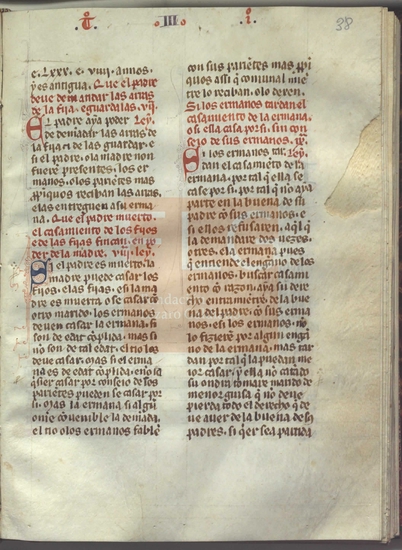 T III i 38
e. Lxxx. e. viiii. annos.
yes antigua. Que el padre
deue demandar las arras
de la fija. e guardalas. vij.
El padre aya poder Ley.
de demandar las arras de
la fija e de las guardar. e
si el padre. o la madre non
fuere presentes. los er
manos. o los parietes mas
propiquos reciban las arras.
e las entreguen a su erma
na. Que el padre muerto.
el casamiento de los fijos
e de las fijas fincan en po
der de la madre. viij. ley.
Si el padre es muerto la
madre puede casar los
fijos. e las fijas. e si la ma
dre es muerta. o se casar co
otro marido. los ermanos
deuen casar la ermana. si
son de edat coplida. mas si
no son de tal edat. el tio los
deue casar. mas si el erma
no es de edat coplida. e no se
qsier casar por conseio de sos
parietes pueden se casar por
si. mas la ermana si algu
ome couenible la demada.
el tio o los ermanos fable
con sus parietes mas propi
quos assi que comunal mie
tre lo reciban. o lo dexen.
Si los ermanos tardan el
casamiento de la ermana.
o si ella casa por si. sin con
seio de sus ermanos. ix.
Si los ermanos tar Ley.
dan el casamieto de la
ermana. por tal que ella se
case por si. por tal que no aya
parte en la buena de su
padre co sus ermanos. e
si ellos refusaren. aql que
la demandare dos uezes.
o tres. e la ermana pues
que entiende el engano de los
ermanos. buscar casami
ento co razon. aya su dere
cho entramiente de la bue
na del padre. co sus erma
nos. e si los ermanos. no
lo fiziere por algun enga
no de la ermana. mas tar
dan por tal que la puedan me
ior casar. y ella no catado
su ondra. tomare marido de
menor guisa que no deue
pierda todo el derecho que de
ue auer de la buena de so
padres. si qer sea partida